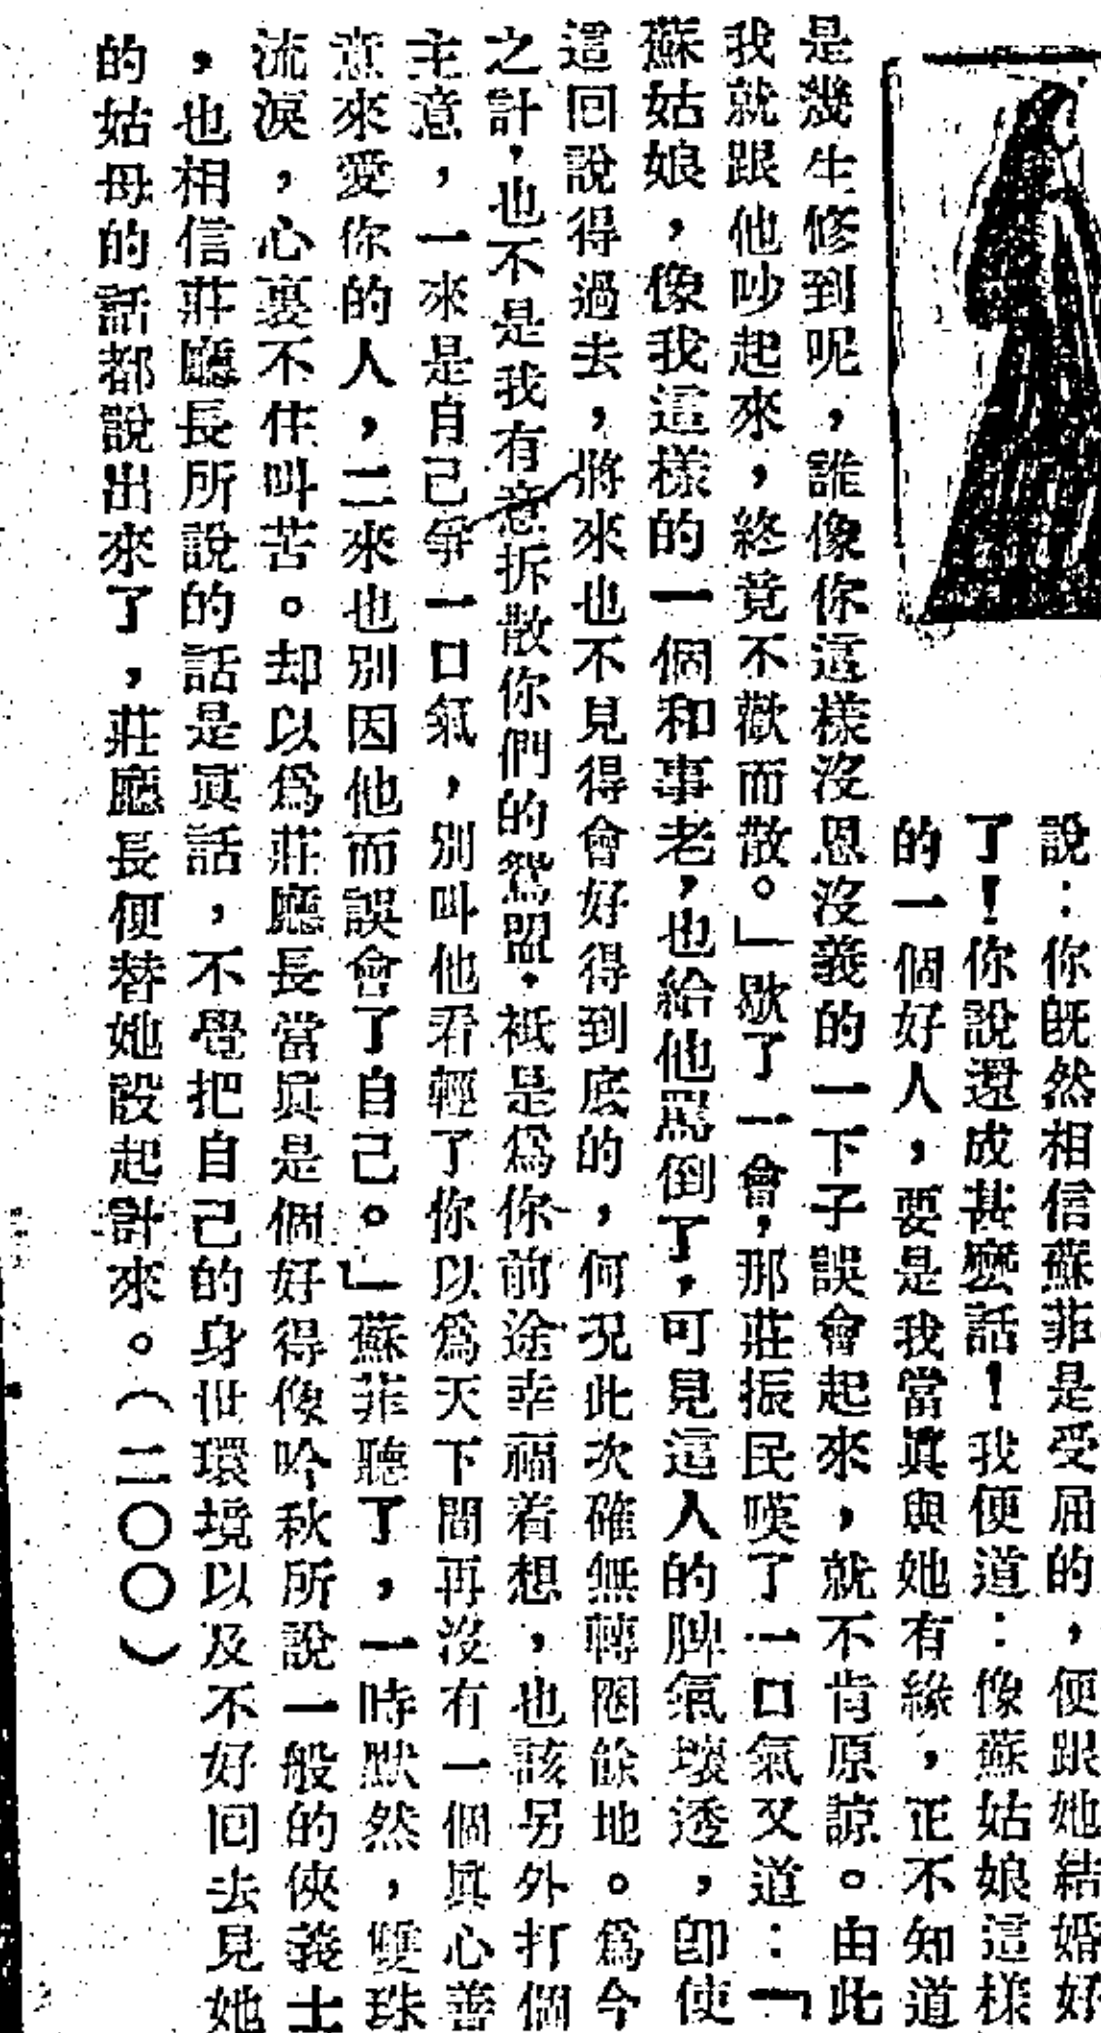 說：你旣然相信蘇菲是受屈的，便跟她結婚好
了！你說還成甚麽話！我便道：像蘇姑娘這樣
的一個好人，要是我當眞與她有緣，正不知道
是幾生修到呢，誰像你這樣沒恩沒義的一下子誤會起來，就不肯原諒。由此
我就跟他吵起來，終竟不歡而散。」歇了一會，那莊振民嘆了一口氣又道：「
蘇姑娘，像我這樣的一個和事老，也給他駡倒了，可見這人的脾氣壞透，卽使
這回說得過去，將來也不見得會好得到底的，何况此次確無轉圜餘地。爲今
之計，也不是我有意拆散你們的鴛盟，祗是爲你前途幸福着想，也該另外打個
主意，一來是自己爭一口氣，別叫他看輕了你以爲天下間再沒有一個眞心善
意來愛你的人，二來也別因他而誤會了自己。」蘇菲聽了，一時默然，雙珠
流淚，心裏不住叫苦。却以爲莊廳長當眞是個好得像吟秋所說一般的俠義士
，也相信莊廳長所說的話是眞話，不覺把自己的身世環境以及不好回去見她
的姑母的話都說出來了，莊廳長便替她設起計來。（二〇〇）